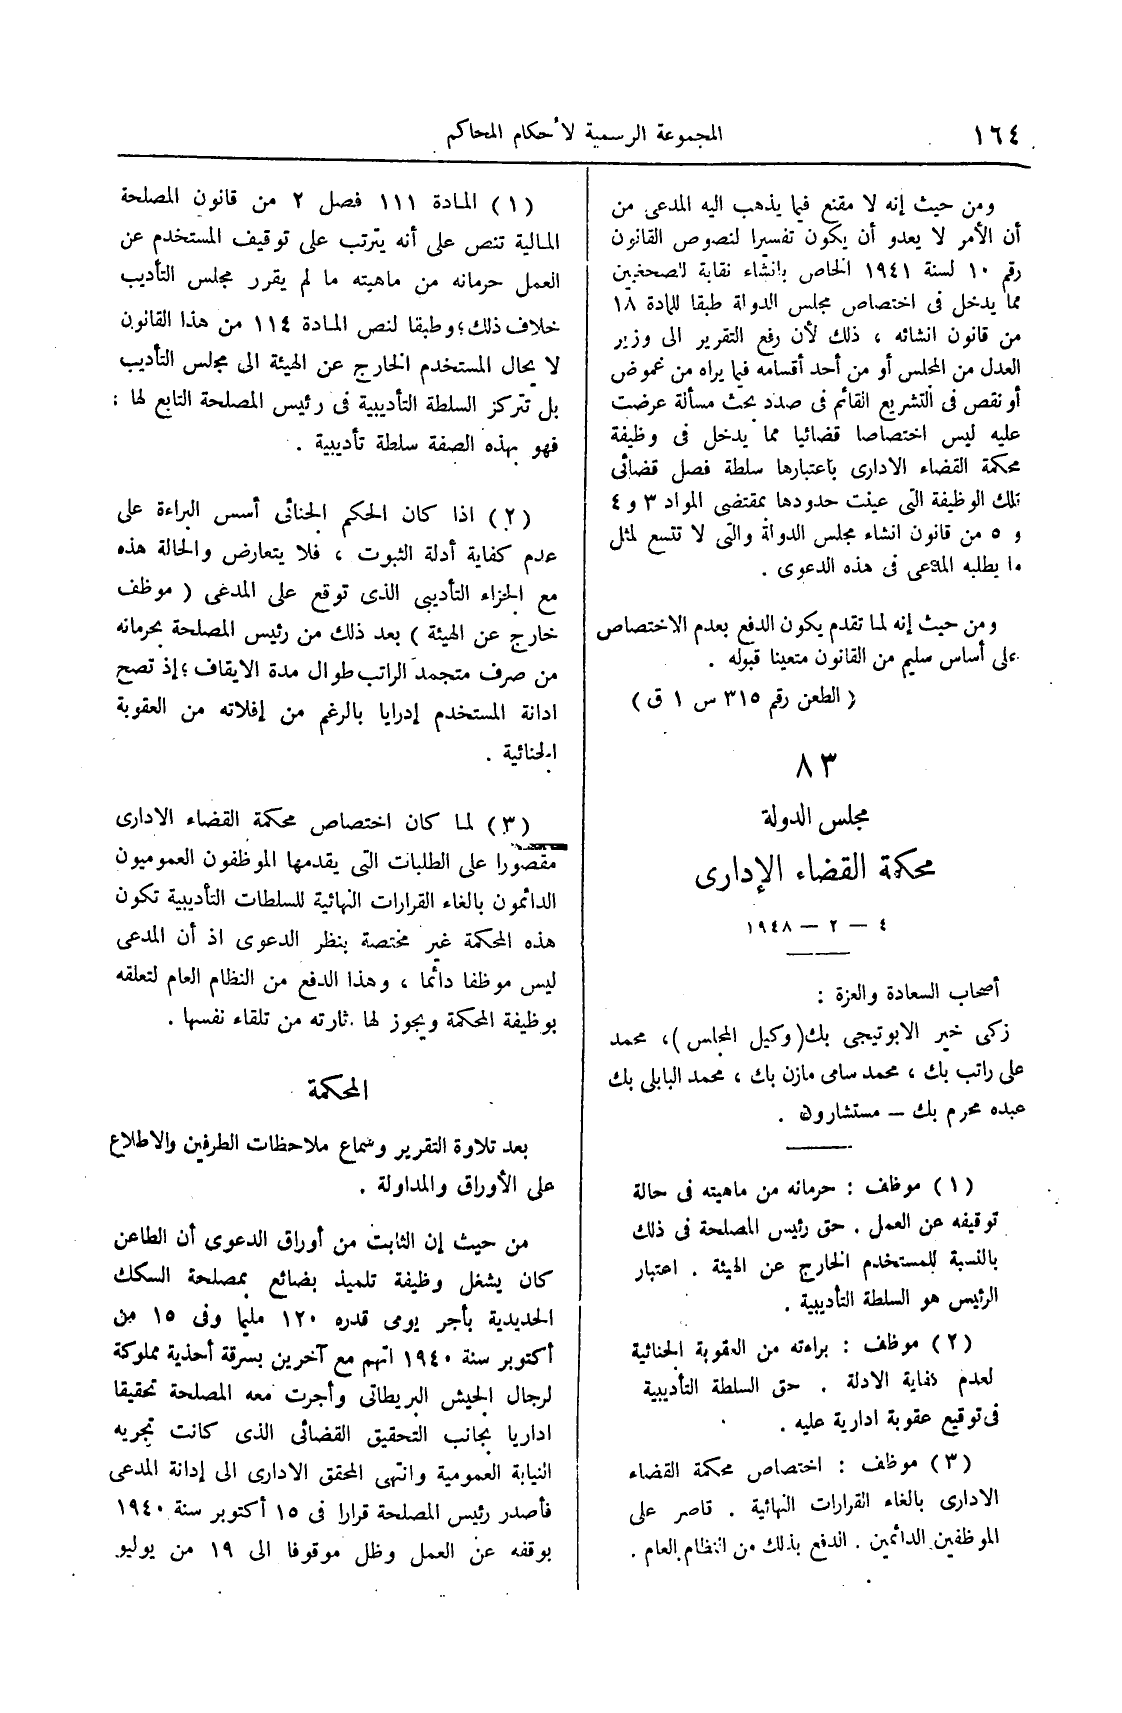 ١٦٤
المجموعة الرسمية لأحكام المحاكم
ومن حيث إنه لا مقنع فيما يذهب اليه المدعى من
أن الأمر لا يعدو أن يكون تفسيرا لنصوص القانون
رقم ١٠ لسنة ١٩٤١ الخاص بانشاء نقابة الصحفيين
مما يدخل فى اختصاص مجلس الدولة طبقا للمادة ١٨
من قانون انشائه ، ذلك لأن رفع التقرير الى وزير
العدل من المجلس أو من أحد أقسامه فيما يراه من غموض
أو نقص فى التشريع القائم فى صدد بحث مسألة عرضت
عليه ليس اختصاصا قضائيا مما يدخل فى وظيفة
محكمة القضاء الادارى باعتبارها سلطة فصل قضائى
تلك الوظيفة التى عينت حدودها بمقتضى المواد ٣ و ٤
و ٥ من قانون انشاء مجلس الدولة والتى لا تتسع لمثل
ما يطلبه المدعى فى هذه الدعوى .
ومن حيث إنه لما تقدم يكون الدفع بعدم الاختصاص
على أساس سليم من القانون متعينا قبوله .
( الطعن رقم ٣١٥ س ١ ق )
٨٣
مجلس الدولة
محكمة القضاء الإدارى
٤ — ٢ — ١٩٤٨
أصحاب السعادة والعزة :
زكى خير الابوتيجى بك ( وكيل المجلس ) ، محمد
على راتب بك ، محمد سامى مازن بك ، محمد البابلى بك
عبده محرم بك — مستشارون .
( ١ ) موظف : حرمانه من ماهيته فى حالة
توقيفه عن العمل . حق رئيس المصلحة فى ذلك
بالنسبة للمستخدم الخارج عن الهيئة . اعتبار
الرئيس هو السلطة التأديبية .
( ٢ ) موظف : براءته من العقوبة الجنائية
لعدم كفاية الادلة . حق السلطة التأديبية
فى توقيع عقوبة ادارية عليه .
( ٣ ) موظف : اختصاص محكمة القضاء
الادارى بالغاء القرارات النهائية . قاصر على
الموظفين الدائمين . الدفع بذلك من النظام العام .
( ١ ) المادة ١١١ فصل ٢ من قانون المصلحة
المالية تنص على أنه يترتب على توقيف المستخدم عن
العمل حرمانه من ماهيته ما لم يقرر مجلس التأديب
خلاف ذلك ؛ وطبقا لنص المادة ١١٤ من هذا القانون
لا يحال المستخدم الخارج عن الهيئة الى مجلس التأديب
بل تتركز السلطة التأديبية فى رئيس المصلحة التابع لها ؛
فهو بهذه الصفة سلطة تأديبية .
( ٢ ) اذا كان الحكم الجنائى أسس البراءة على
عدم كفاية أدلة الثبوت ، فلا يتعارض والحالة هذه
مع الجزاء التأديبى الذى توقع على المدعى ( موظف
خارج عن الهيئة ) بعد ذلك من رئيس المصلحة بحرمانه
من صرف متجمد الراتب طوال مدة الايقاف ؛ إذ تصح
ادانة المستخدم إدرايا بالرغم من إفلاته من العقوبة
الجنائية .
( ٣ ) لما كان اختصاص محكمة القضاء الادارى
مقصورا على الطلبات التى يقدمها الموظفون العموميون
الدائمون بالغاء القرارات النهائية للسلطات التأديبية تكون
هذه المحكمة غير مختصة بنظر الدعوى اذ أن المدعى
ليس موظفا دائما ، وهذا الدفع من النظام العام لتعلقه
بوظيفة المحكمة ويجوز لها اثارته من تلقاء نفسها .
المحكمة
بعد تلاوة التقرير وسماع ملاحظات الطرفين والاطلاع
على الأوراق والمداولة .
من حيث إن الثابت من أوراق الدعوى أن الطاعن
كان يشغل وظيفة تلميذ بضائع بمصلحة السكك
الحديدية بأجر يومى قدره ١٢٠ مليما وفى ١٥ من
أكتوبر سنة ١٩٤٠ اتهم مع آخرين بسرقة أحذية مملوكة
لرجال الجيش البريطانى وأجرت معه المصلحة تحقيقا
اداريا بجانب التحقيق القضائى الذى كانت تجريه
النيابة العمومية وانتهى المحقق الادارى الى إدانة المدعى
فأصدر رئيس المصلحة قرارا فى ١٥ أكتوبر سنة ١٩٤٠
بوقفه عن العمل وظل موقوفا الى ١٩ من يوليو